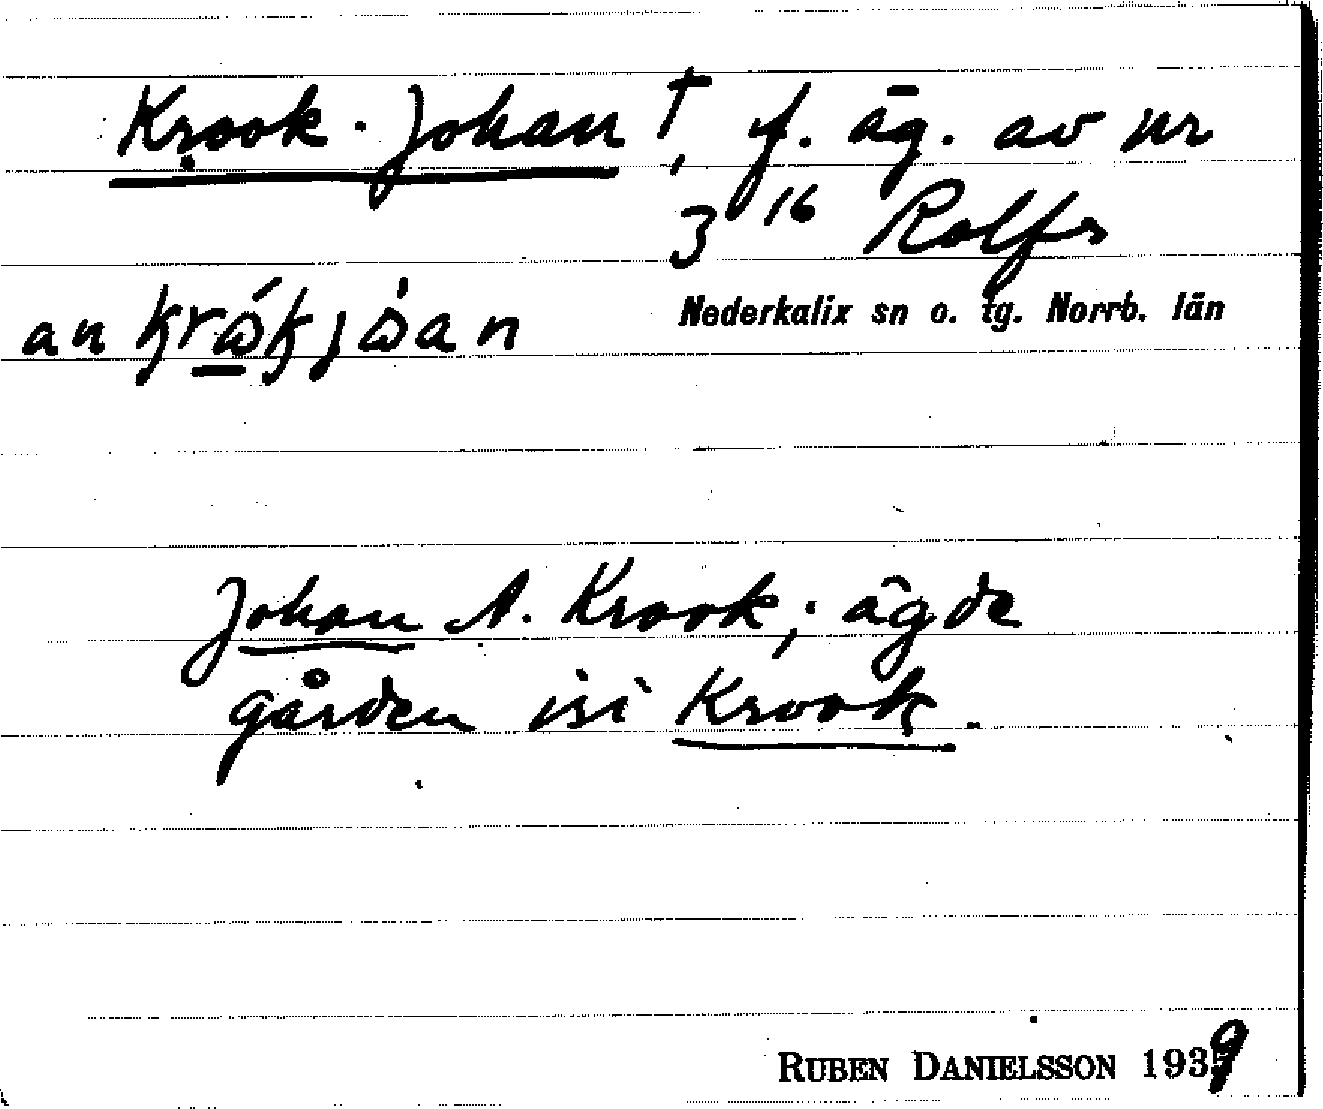 Krook-Johan †, f. äg. av nr
3 16 Rolfs
an
Nederkalix sn o. tg. Norrb. län
Johan A. Krook; ägde
gården isi Krook.
RUBEN DANIELSSON 1939